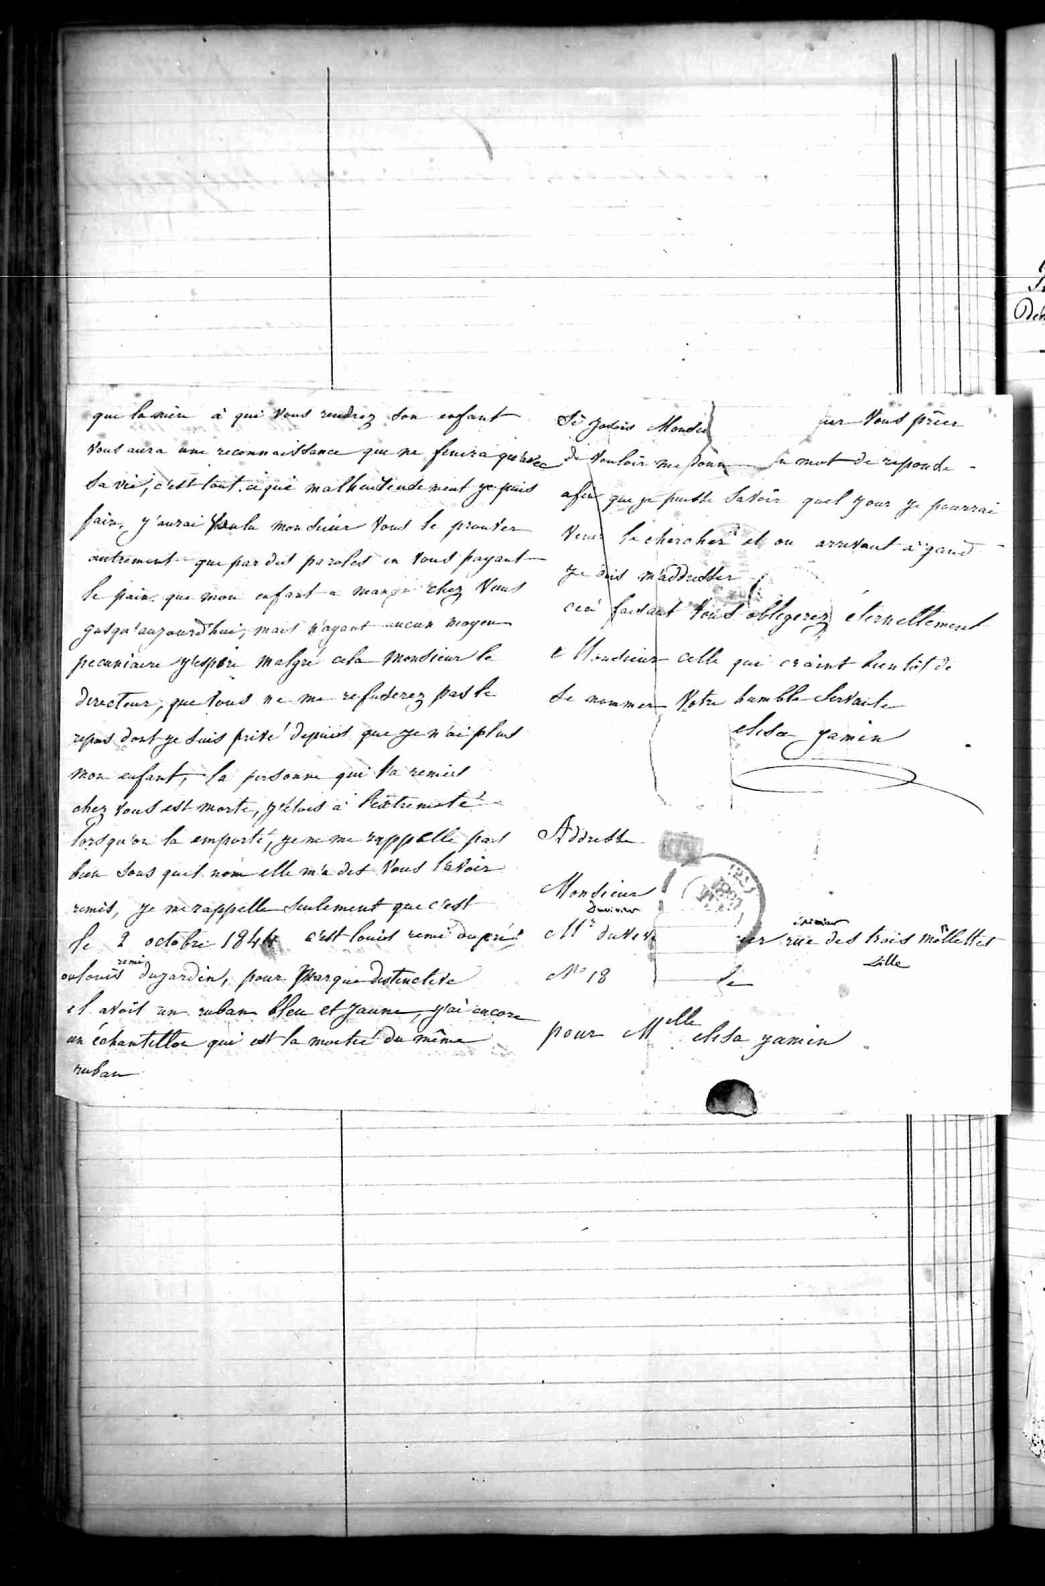 que la mère à qui vous rendrez son enfant
vous aura une reconnaissance que ne finira qu'avec
sa vie, c'est tout ce que malheureusement je puis
faire, j'aurai voulu monsieur vous le prouver
autrement que par des paroles en vous payant
le pain que mon enfant a mangé chez vous
jusqu'aujourd'hui, mais n'ayant aucun moyen
pecuniaire j'espère malgré cela monsieur le
directeur, que vous ne me refuserez pas le
repos dont je suis privé depuis que je n'ai plus
mon enfant, la personne qui l'a remis
chez vous est morte, j'étois à l'extremeté
lorsqu'on la emporté, je ne me rappelle pas
bien sous quel nom elle m'a dit vous l'avoir
remis, je me rappelle seulement que c'est
le 2 octobre 1844 c'est louis remi dupré
ou louis remi dujardin, pour marque distinctive
il avoit un ruban bleu et jaune, j'ai encore
un échantillon qui est la moitié du même
ruban
Si j'osois Monsieur vous prier
de vouloir me donner un mot de reponse
afin que je puisse savoir quel jour je pourrai
venir le chercher et ou arrivant à gand
je dois m'addresser
ceci faisant vous obligerez éternellement
Monsieur celle qui craint bientôt de
se nommer Votre humble Servante
elisa jamin
Addresse
Monsieur
Duvivier
Mr duviv er rue des trois môllettes
Lille
No 18
pour Melle elisa jamin